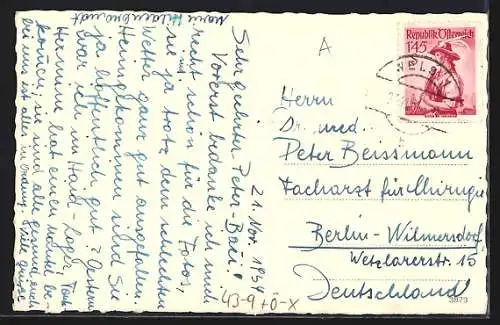 21. Nov. 1951
Sehr geehrter Peter-Bau!
Vorerst bedanke ich mich
recht schön für die Fotos,
sie ja trotz dem schlechten
Wetter ganz gut ausgefallen.
Heimgekommen sind Sie
ja hoffentlich gut? Gestern
war ich im Haid-Lager, Tante
Hermine hat euch
können, sie sind alle gesund, auch
bei uns ist alles in Ordnung. Viele Grüße
A
Republik Österreich
1'45
WELS
Herrn
Dr. med.
Peter Beissmann
Facharzt für Chirurgie
Berlin-Wilmersdorf
Wetzlarerstr. 15
Deutschland
43-9+Ö-X
3873